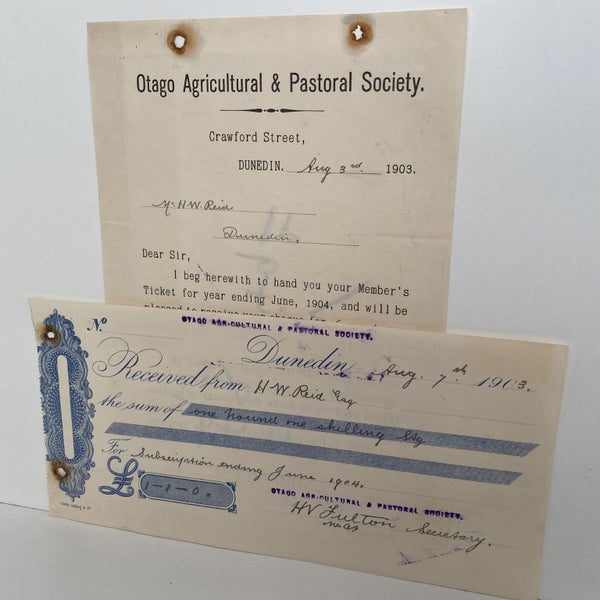 Otago Agricultural & Pastoral Society.
Crawford Street,
DUNEDIN. Aug 3rd. 1903.
Mr H.W. Reid
Dunedin.
Dear Sir,
I beg herewith to hand you your Member's
Ticket for year ending June, 1904, and will be
pleased to receive your cheque for
No
OTAGO AGRICULTURAL & PASTORAL SOCIETY.
Dunedin Aug. 7th. 1903.
Received from H.W. Reid Esq
the sum of one Pound one shilling Stg
For Subscription ending June 1904.
£ 1-1-0.
OTAGO AGRICULTURAL & PASTORAL SOCIETY.
HV Fulton Secretary.